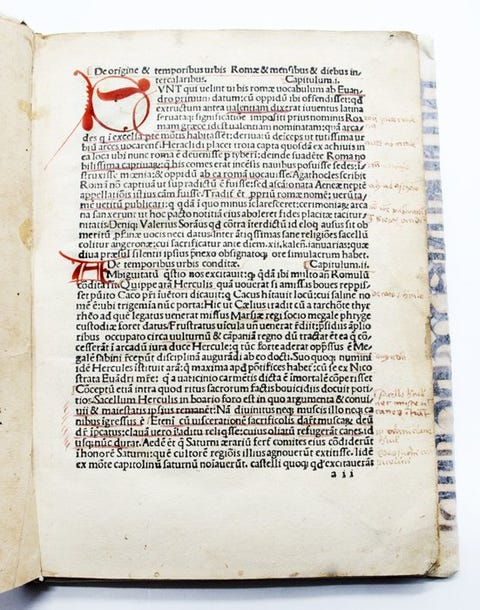 De origine & temporibus urbis Romæ & mensibus & diebus in-
tercalaribus. Capitulum.i.
VNT qui uelint urbis romæ uocabulum ab Euan
dro primum datum: cū oppidū ibi offendisset: qđ
extructum antea ualentiam dixerat iuuentus latina
seruataq; significatiōe impositi prius nominis Ro
mam græce idest ualentiam nominatam: quā arca
des q̄ ī excelsa pte mōtis habitassēt: deriuatū deīceps ut tutissima ur
biū arces uocarent. Heraclidi placet troia capta quosdā ex achiuis in
ea loca ubi nunc roma ē deuenisse p tyberī: deinde suadēte Romē no
bilissima captiuaq; quæ his comes erat incēsis nauibus posuisse sedes: ī
struxisse mœnia: & oppidū ab ea romā uocauisse. Agathocles scribit
Romā nō captiuā ut supradictū ē fuisse: sed ascaīo nata Aeneæ neptē
appellatiōis istius cām fuisse. Tradit̄ & ppriū romæ nomē: uerū ta
me uetitū publicari: qđ quō minus īclaresceret cerimoniaꝝ arca
na sanxerunt ut hoc pacto notitiā eius aboleret fides placitæ tacitur
nitatis. Deniq; Valerius Soranus qđ cōtra īterdictū id eloq̄ ausus sit ob
meritū pfanæ uocis neci datus. Inter ātiqssimas sane religiōes sacellū
colitur angeronæ: cui sacrificatur ante diem .xii. kalen. ianuarias: quæ
diua præsul silentii ipsius pnexo obsignatoq; ore simulacrum habet.
De temporibus urbis conditæ. Capitulum.ii.
AMbiguitatū q̄stio nos excitauit: q̄ qđā ibi multo añ Romulū
cōdita sint. Quippe arā Herculis quā uouerat si amissas boues repis-
set punito Caco p̄ri īuētori dicauit. Qui Cacus hitauit locū: cui salinæ no
mē ē: ubi trigemia nūc porta. Hic ut Cælius tradit cū a tarchōe thyr
rhēo ad quē legatus uenerat missus Marsiæ regis socio megale phryge
custodiæ foret datus: Frustratus uīcula un uenerat rediit: psidiis āplio
ribus occupato circa uulturnū & cāpaniā regno dū tractat̄ & ea q̄ cō
cesserāt ī arcadū iura duce Hercule: q̄ tūc forte aderat oppssus ē. Me
galē sabini recepūt disciplinā augurandi ab eo docti. Suo quoq; numini
idē Hercules īstituit arā: q̄ maxima apd pōtifices habet̄: cū se ex Nico
strata Euādri mr̄e: q̄ a uaticinio carmētis dicta ē īmortalē cōperisset
Cōceptū etiā intra quod ritus sacrorum factis bouicidiis docuit poti-
tios. Sacellum Herculis in boario foro est in quo argumenta & conui
uii & maiestatis ipsius remanēt. Nā diuinitus neq; muscis illo neq; ca
nibus īgressus ē. Eteni cū uiscerationē sacrificolis daret muscarū deū
dr̄ īprecatus: clauā uero ī aditu reliq̄sse: cuius olfatū refugerāt canes. id
usq; nūc durat. Aedē et q̄ Saturni ærariū fert̄ comites eius cōdiderūt
ī honorē Saturni: quē cultorē regiōis illius agnouerāt extitisse. Iidē
ex mōte capitolinū saturniū noīauerūt. castelli quoq; qđ excitauerāt
a ii